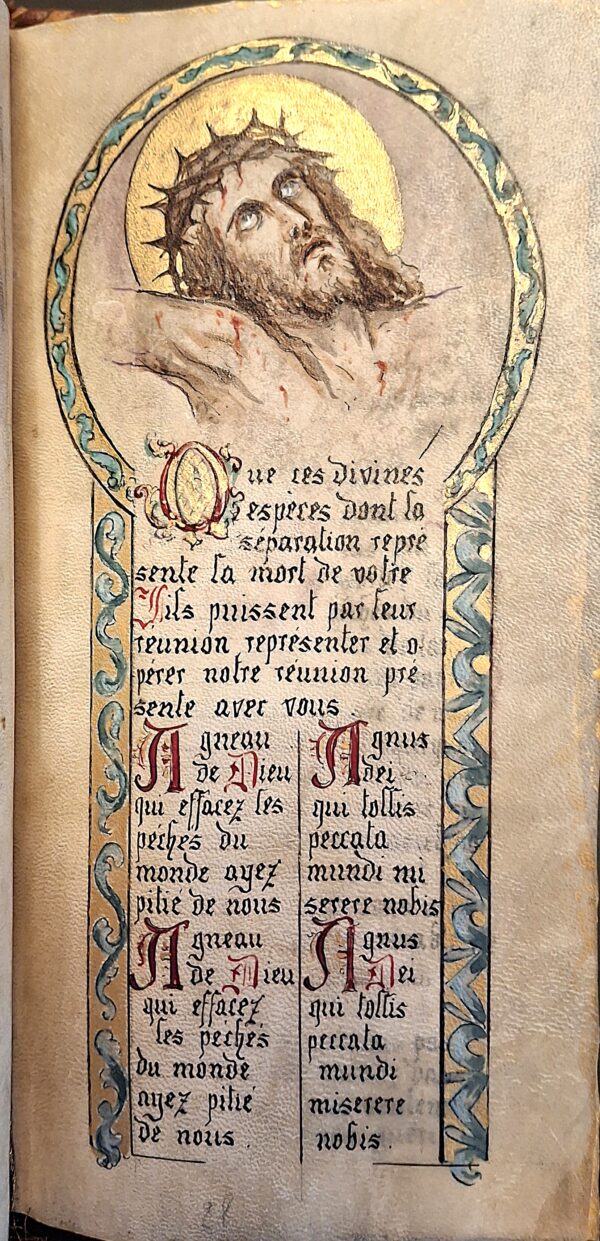 Que ces divines
espèces dont la
séparation repré
sente la mort de votre
Fils puissent par leur
réunion représenter et o
pérer notre réunion pré
sente avec vous
Agneau
de Dieu
qui effacez les
péchés du
monde ayez
pitié de nous
Agneau
de Dieu
qui effacez
les péchés
du monde
ayez pitié
de nous.
Agnus
dei
qui tollis
peccata
mundi mi
serere nobis
Agnus
Dei
qui tollis
peccata
mundi
miserere
nobis.
28